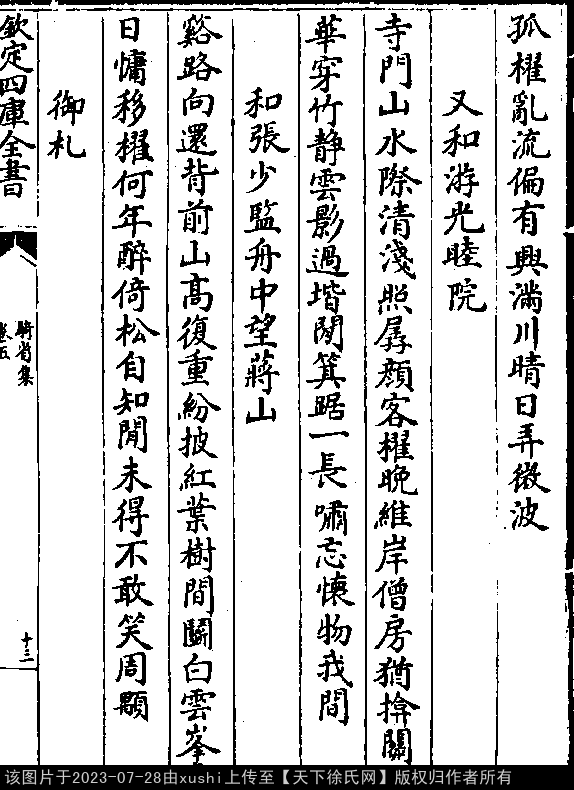 孤櫂亂流偏有興滿川晴日弄微波
又和游光睦院
寺門山水際清淺照孱顏客櫂晚維岸僧房猶揜關
華穿竹静雲影過堦閒箕踞一長嘯忘懷物我間
和張少監舟中望蔣山
谿路向還背前山高復重紛披紅葉樹間鬭白雲峯
日慵移櫂何年醉倚松自知閒未得不敢笑周顒
御札
欽定四庫全書
騎省集
卷五
十三
该图片于2023-07-28由xushi上传至【天下徐氏网】版权归作者所有